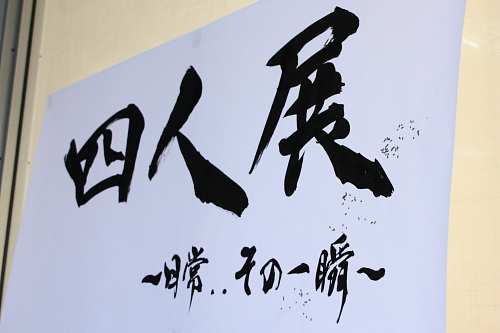 四人展
〜日常‥その一瞬〜